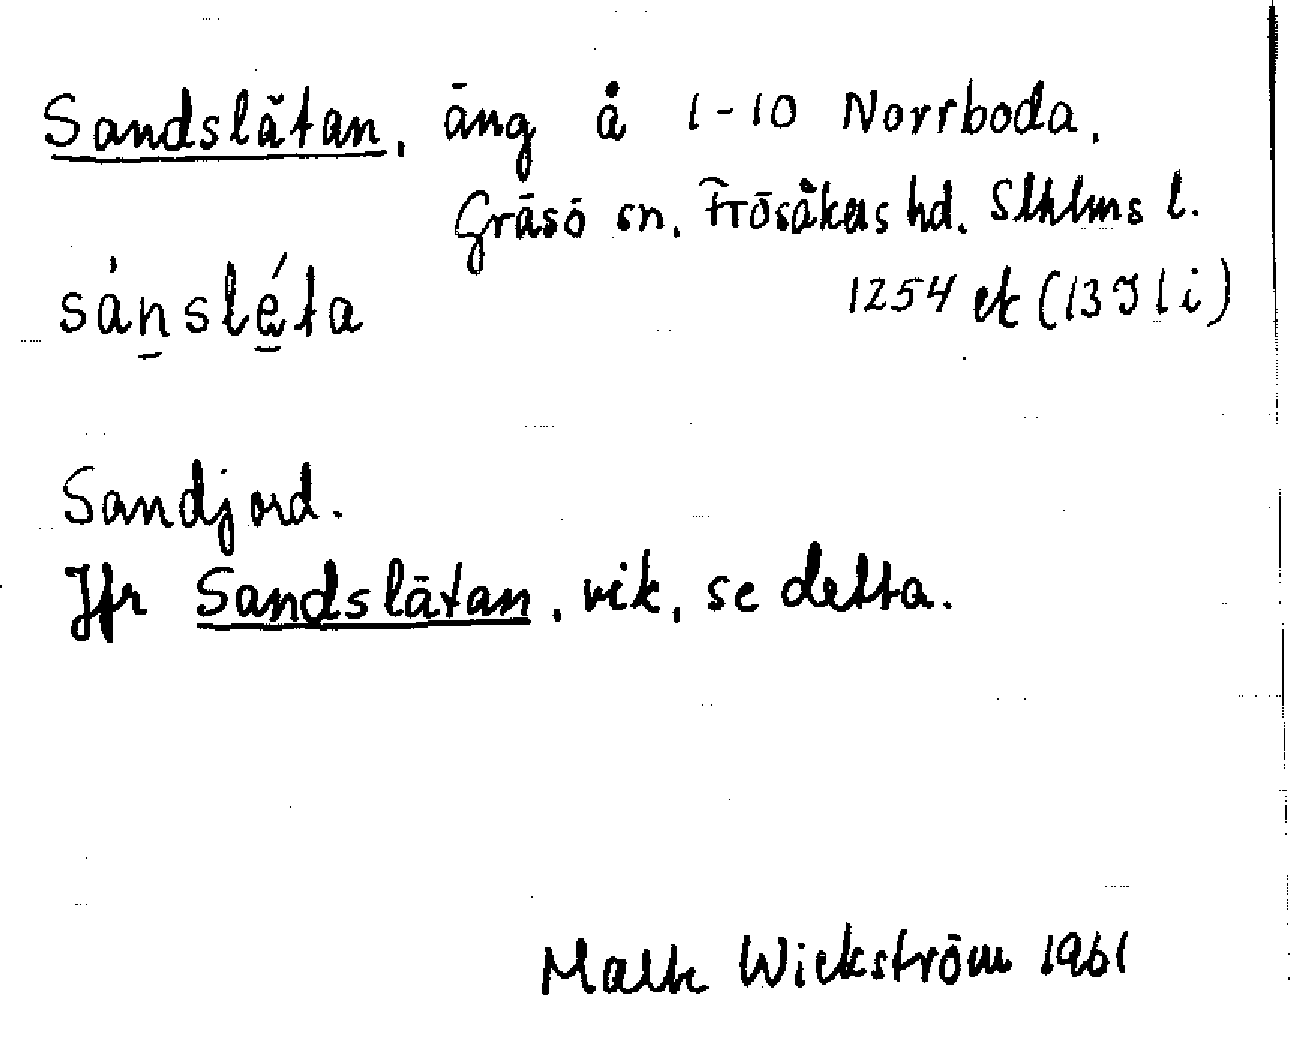 Sandslätan, äng å 1-10 Norrboda,
Gräsö sn, Frösåkers hd. Sthlms l.
sánsléta
1254 ek (13I 1 i)
Sandjord.
Jfr Sandslätan, vik, se detta.
Malte Wickström 1961